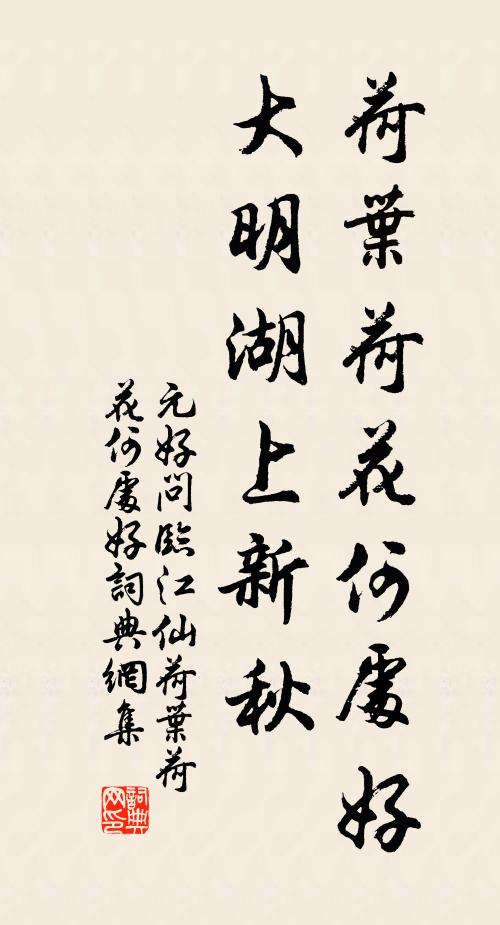 荷葉荷花何處好
大明湖上新秋
元好問臨江仙荷葉荷
花何處好詞典網集
詞典
网印